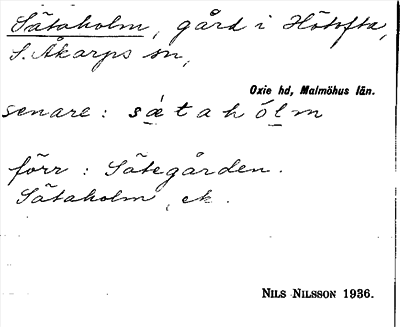 Sätaholm, gård i Hötofta,
S. Åkarps sn,
Oxie hd, Malmöhus län.
senare : sǽtahólm
förr : Sätegården.
Sätaholm, ek.
NILS NILSSON 1936.